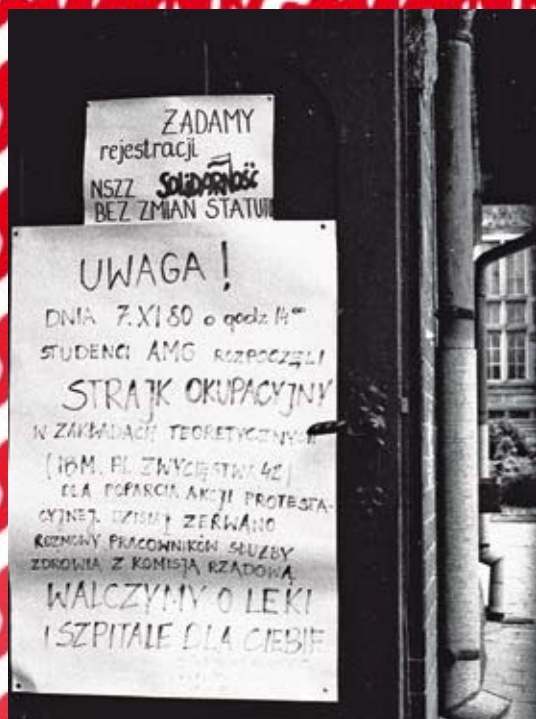 ŻĄDAMY
rejestracji
NSZZ SOLIDARNOŚĆ
BEZ ZMIAN STATUTU
UWAGA!
DNIA 7.XI 80 o godz 14⁰⁰
STUDENCI AMG ROZPOCZĘLI
STRAJK OKUPACYJNY
W ZAKŁADACH TEORETYCZNYCH
(IBM. PL. ZWYCIĘSTWA 42)
DLA POPARCIA AKCJI PROTESTA-
CYJNEJ. DZISIAJ ZERWANO
ROZMOWY PRACOWNIKÓW SŁUŻBY
ZDROWIA Z KOMISJĄ RZĄDOWĄ
WALCZYMY O LEKI
I SZPITALE DLA CIEBIE